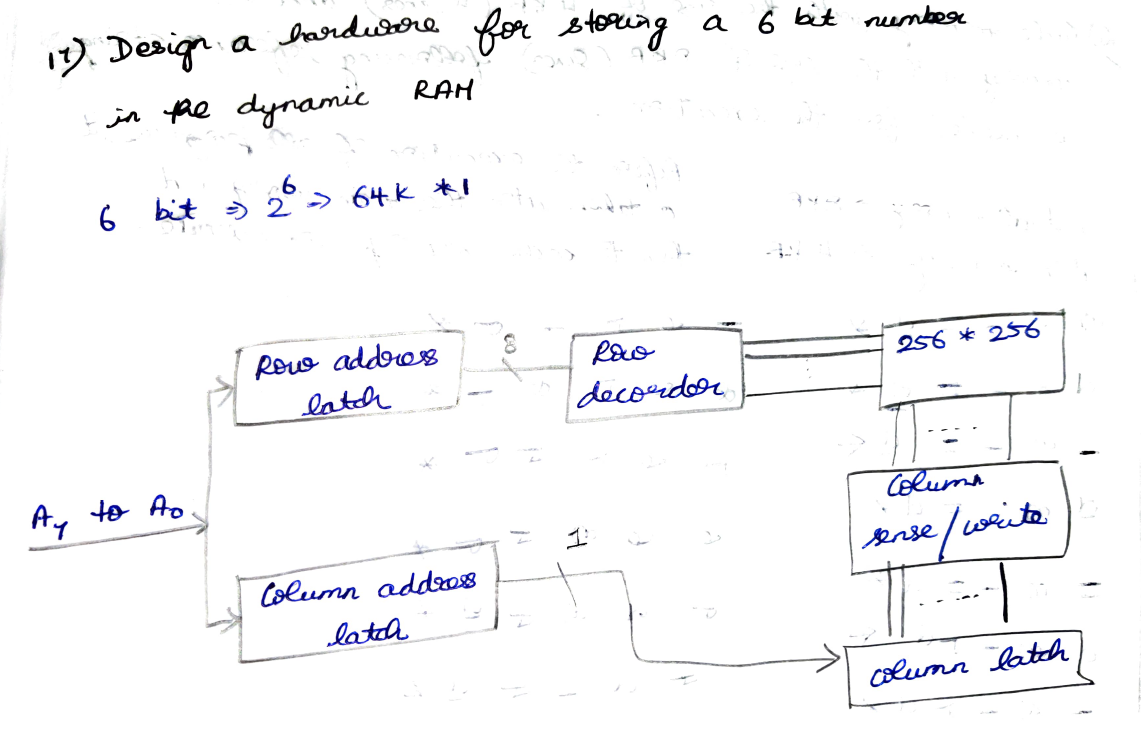 17). Design a hardware for storing a 6 bit number
in the dynamic RAM
6 bit ⇒ 2⁶ ⇒ 64k *1
Row address
latch
8
Row
decordor
256 * 256
Column
sense/write
A₇ to A₀
1
Column address
latch
column latch